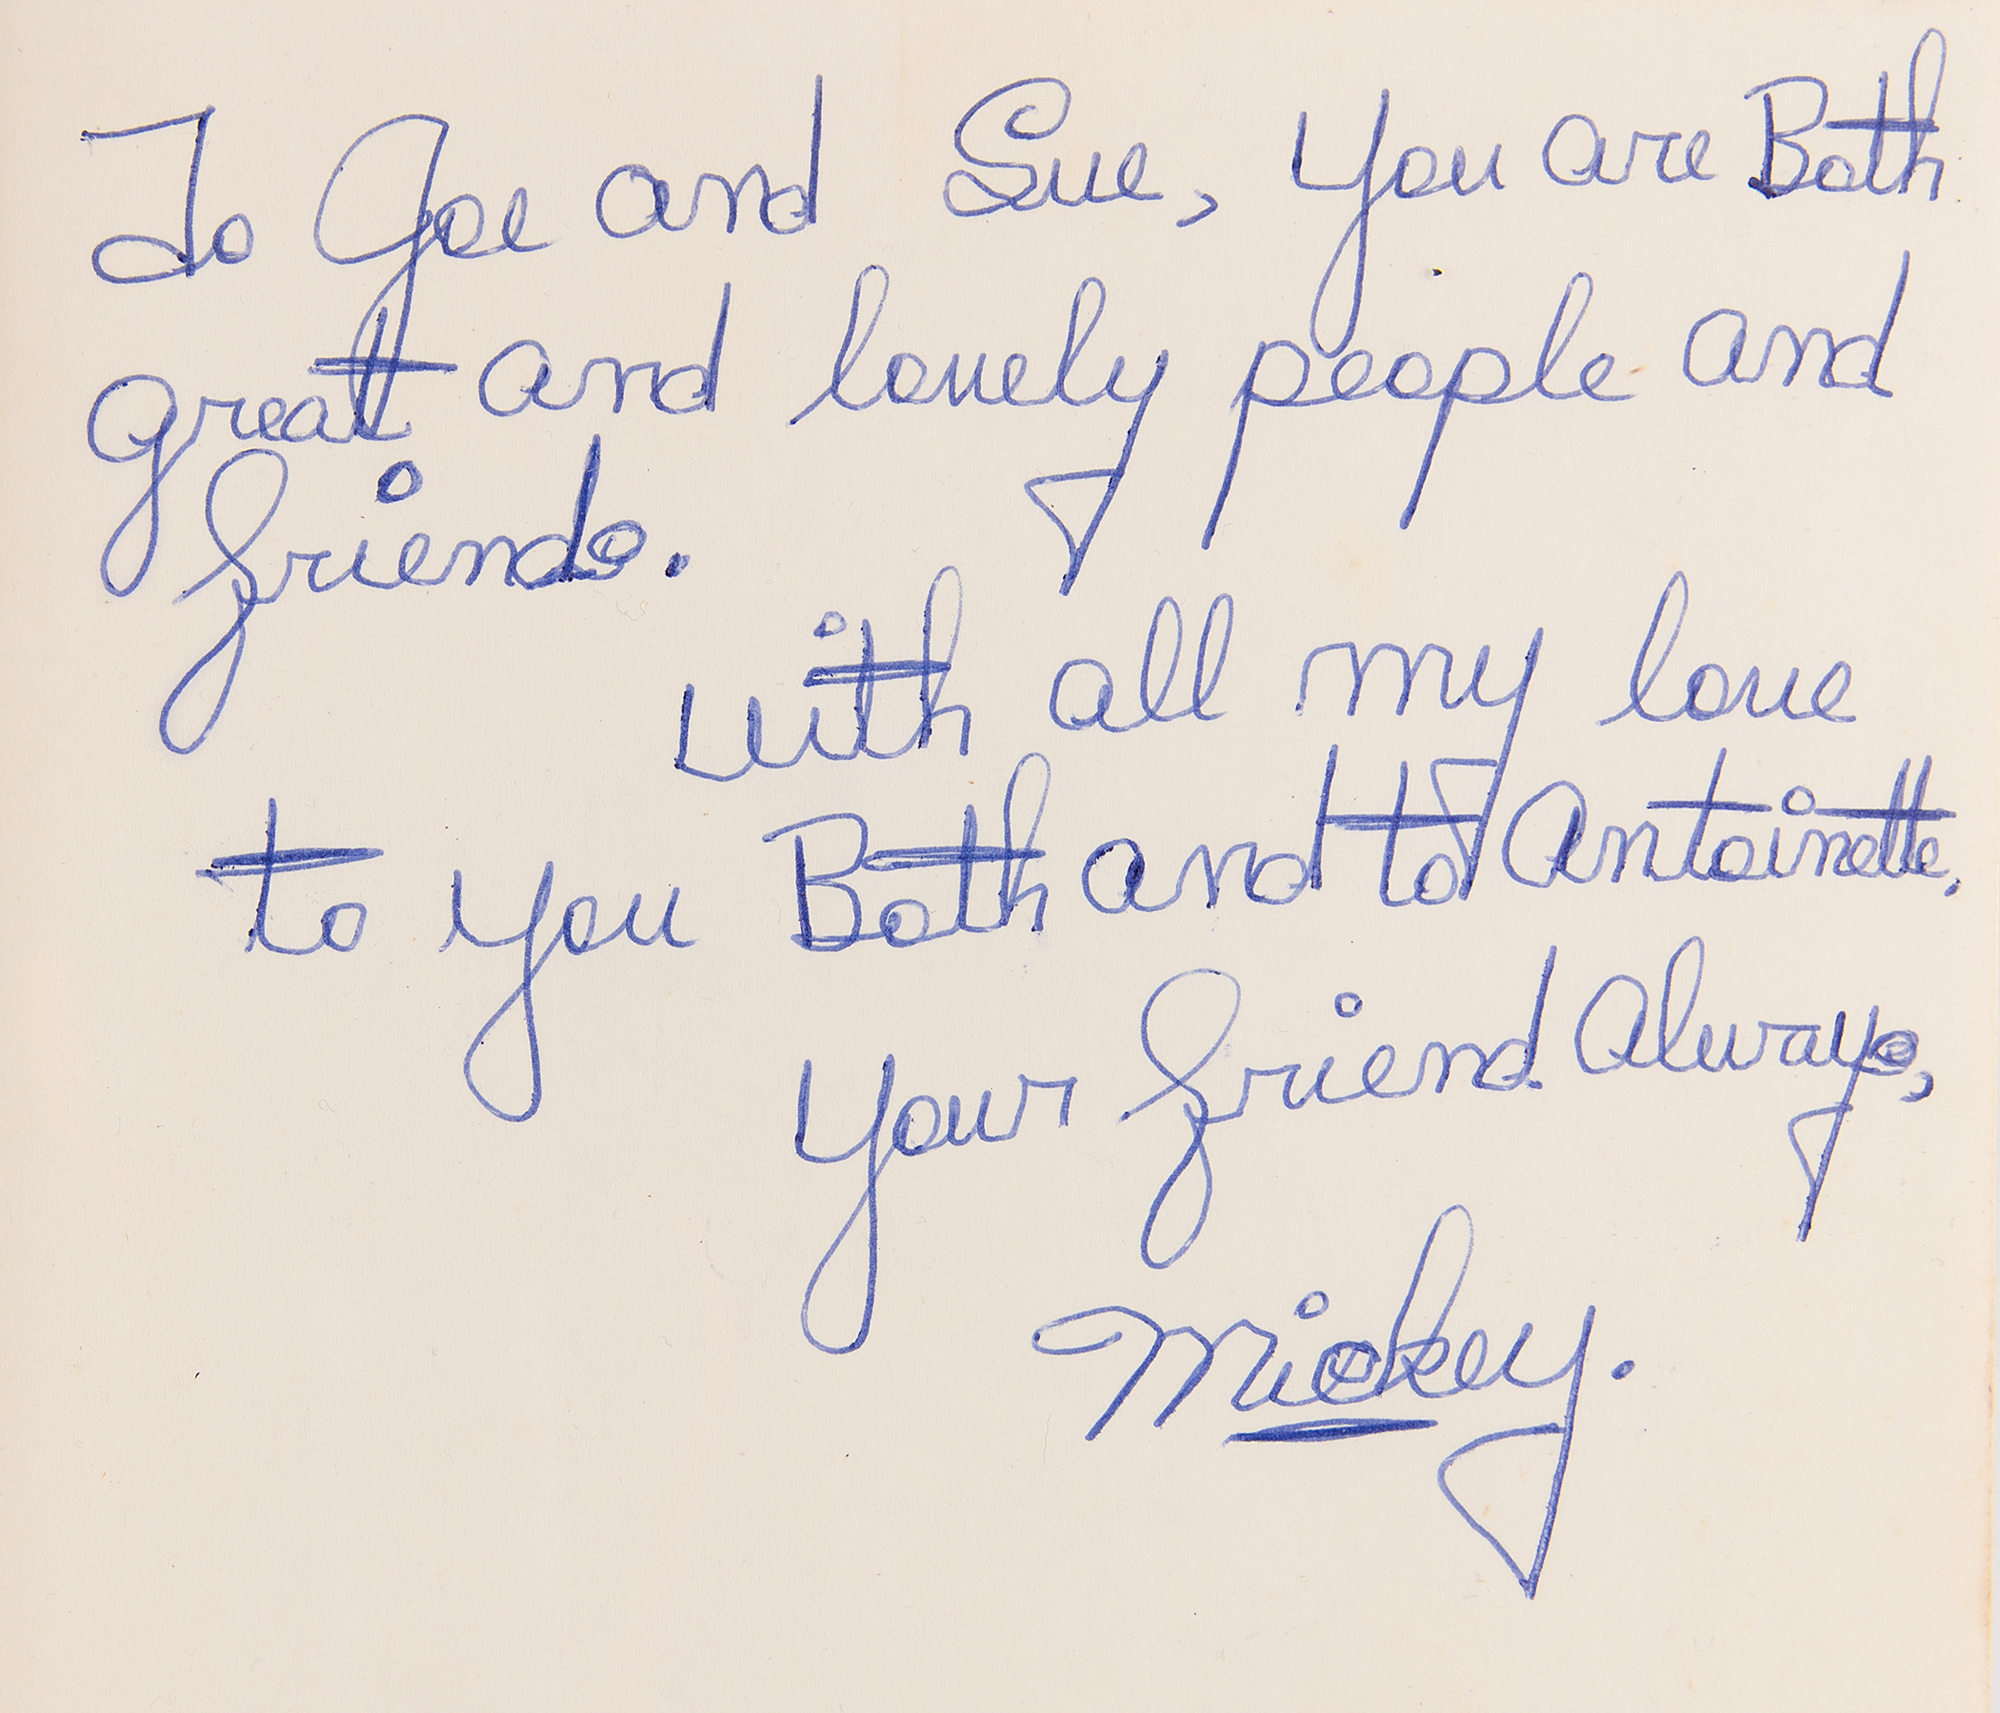 To Joe and Sue, you are Both
great and lovely people and
friends.
with all my love
to you Both and to Antoinette.
your friend always,
Mickey.